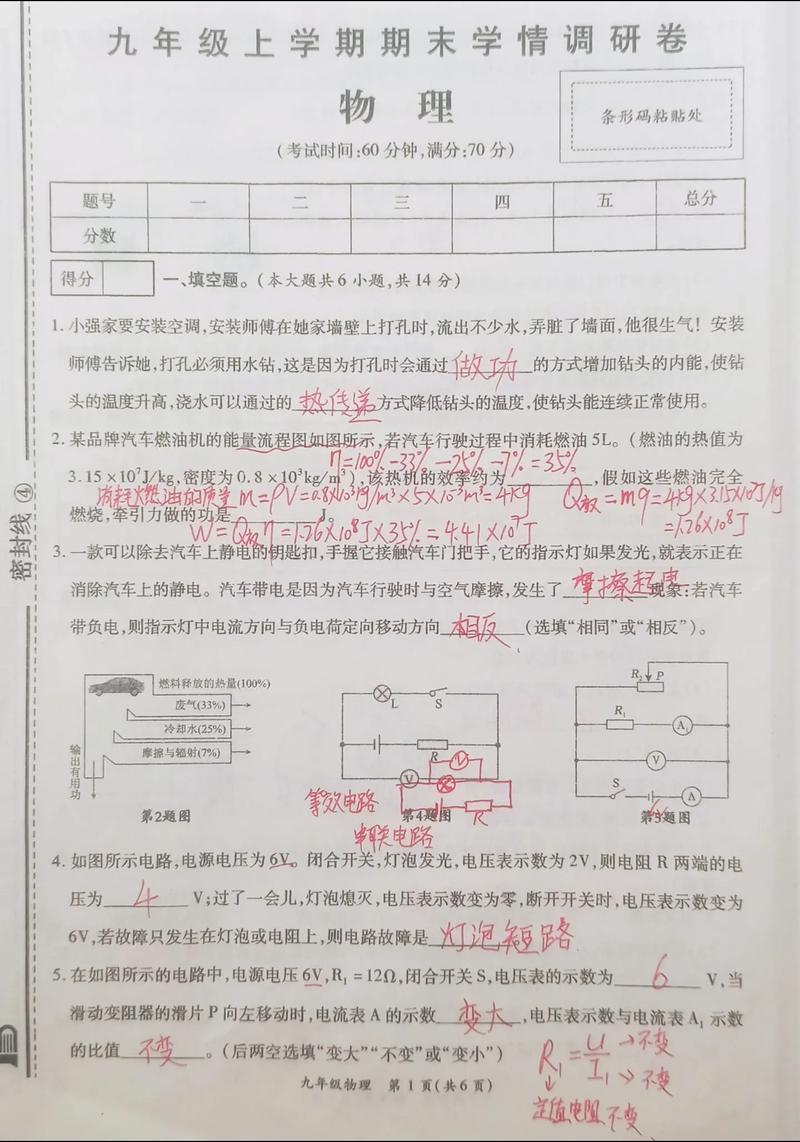 九年级上学期期末学情调研卷
物 理
条形码粘贴处
(考试时间:60分钟,满分:70分)
题号 一 二 三 四 五 总分
分数
得分
一、填空题。(本大题共6小题,共14分)
1. 小强家要安装空调,安装师傅在她家墙壁上打孔时,流出不少水,弄脏了墙面,他很生气!安装
师傅告诉她,打孔必须用水钻,这是因为打孔时会通过 做功 的方式增加钻头的内能,使钻
头的温度升高,浇水可以通过的 热传递 方式降低钻头的温度,使钻头能连续正常使用。
2. 某品牌汽车燃油机的能量流程图如图所示,若汽车行驶过程中消耗燃油5L。(燃油的热值为
η=100%-33%-25%-7%=35%
3.15×10⁷J/kg,密度为0.8×10³kg/m³),该热机的效率约为________,假如这些燃油完全
消耗燃油的质量 m=ρV=0.8×10³kg/m³×5×10⁻³m³=4kg Q放=mq=4kg×3.15×10⁷J/kg
=1.26×10⁸J
燃烧,牵引力做的功是________J。
W=Q放η=1.26×10⁸J×35%=4.41×10⁷J
3. 一款可以除去汽车上静电的钥匙扣,手握它接触汽车门把手,它的指示灯如果发光,就表示正在
消除汽车上的静电。汽车带电是因为汽车行驶时与空气摩擦,发生了 摩擦起电 现象;若汽车
带负电,则指示灯中电流方向与负电荷定向移动方向 相反 (选填“相同”或“相反”)。
燃料释放的热量(100%)
废气(33%)
冷却水(25%)
摩擦与辐射(7%)
输出有用功
第2题图
L S
R
V
V
等效电路
R
第4题图
串联电路
R₂ P
R₁ A₁
V
S A
6V
第5题图
4. 如图所示电路,电源电压为6V。闭合开关,灯泡发光,电压表示数为2V,则电阻R两端的电
压为 4 V;过了一会儿,灯泡熄灭,电压表示数变为零,断开开关时,电压表示数变为
6V,若故障只发生在灯泡或电阻上,则电路故障是 灯泡短路
5. 在如图所示的电路中,电源电压6V,R₁=12Ω,闭合开关S,电压表的示数为 6 V,当
滑动变阻器的滑片P向左移动时,电流表A的示数 变大 ,电压表示数与电流表A₁示数
的比值 不变 。(后两空选填“变大”“不变”或“变小”)
R₁=U/I₁ →不变
→不变
↓
定值电阻不变
九年级物理 第1页(共6页)
密封线④